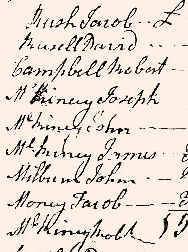 Rush Jacob -- £
Rusell David ---
Campbell Robert -
McKiney Joseph
McKiney John ---
McKiney James -
Milburn John --
Money Jacob --
McKiney Robt